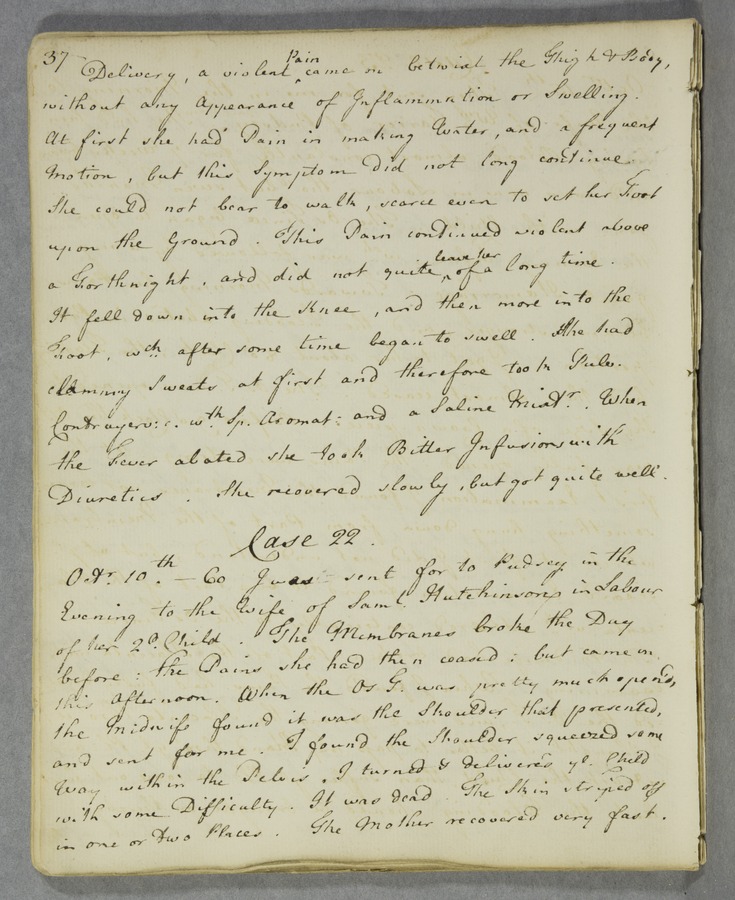 37
Delivery, a violent Pain came on betwixt the Thigh & Body,
without any Appearance of Inflammation or Swelling.
At first she had Pain in making Water, and a frequent
Motion, but this Symptom did not long continue.
She could not bear to walk, scarce even to set her Foot
upon the Ground. This Pain continued violent above
a Forthnight, and did not quite leave her of a long time.
It fell down into the Knee, and then more into the
Foot, wch after some time began to swell. She had
clammy Sweats at first and therefore took Pulv.
Contrayerv: c. wth Sp. Aromat: and a Saline Mixtr. When
the Fever abated she took Bitter Infusions with
Diuretics. She recovered slowly, but got quite well.
Case 22.
Octr. 10th. - 60 I was sent for to Pudsey in the
Evening to the Wife of Saml. Hutchinson, in Labour
of her 2d. Child. The Membranes broke the Day
before: the Pains she had then ceased; but came on
this Afternoon. When the Os G. was pretty much open'd,
the Midwife found it was the Shoulder that presented,
and sent for me. I found the Shoulder squeezed some
Way within the Pelvis. I turned & delivered ye. Child
with some Difficulty. It was dead. The Skin striped off
in one or two Places. The Mother recovered very fast.